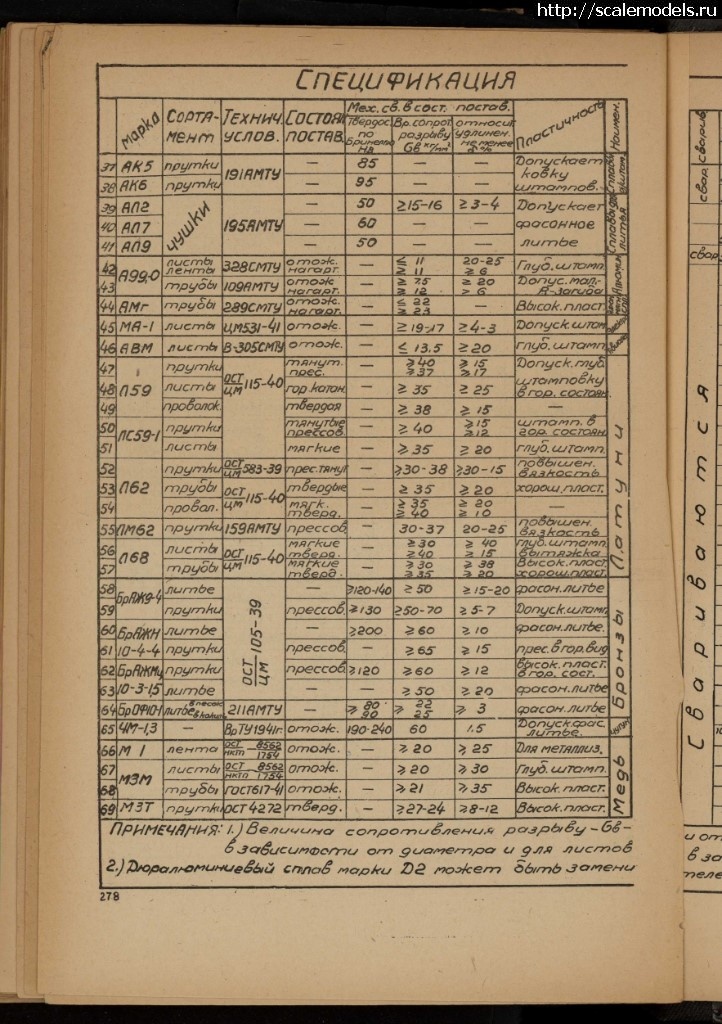 http://scalemodels.ru
СПЕЦИФИКАЦИЯ
МАРКА СОРТА-МЕНТ ТЕХНИЧ. УСЛОВ. СОСТОЯН. ПОСТАВ. Мех. св. в сост. постав. Твердос. по Бринелю НВ Вр. сопрот. разрыву Gв кг/мм² относит. удлинен. не менее % Пластичность Наимен.
37 АК5 прутки 191АМТУ — 85 — — Допускает
38 АК6 прутки — 95 — — ковку штампов.
39 АЛ2 чушки 195АМТУ — 50 ≥15-16 ≥3-4 Допускает
40 АЛ7 — 60 — — фасонное
41 АЛ9 — 50 — — литье
Сплавы для литья
42 А99,0 листы лента 328СМТУ отож. нагарт. — ≤ 11 ≥ 11 20-25 ≥ 6 Глуб. штамп.
43 трубы 109АМТУ отож. нагарт. — ≥ 7.5 ≥ 12 ≥ 20 > 6 Допус. мал.
44 АМг трубы 289СМТУ отож. нагарт. — ≤ 22 ≥ 23 — Высок. пласт.
45 МА-1 листы ЦМ531-41 отож. — ≥19-17 ≥4-3 Допуск. штам
46 АВМ листы В-305СМТУ отож. — ≤ 13.5 ≥ 20 глуб. штамп.
47 Л59 прутки ОСТ/ЦМ 115-40 тянут. прес. — ≥ 40 ≥ 37 ≥ 15 ≥ 17 Допуск. глуб.
48 листы гор. катан. — ≥ 35 ≥ 25 штамповку в гор. состоян.
49 проволок. твердая — ≥ 38 ≥ 15 —
50 ЛС59-1 прутки тянутые прессов. — ≥ 40 ≥15 ≥12 штамп. в гор. состоян.
51 листы мягкие — ≥ 35 ≥ 20 глуб. штамп.
52 Л62 прутки ОСТ/ЦМ 583-39 прес. тянут — ≥30-38 ≥30-15 повышен. вязкость
53 трубы ОСТ/ЦМ 115-40 твердые — ≥ 35 ≥ 20 хорош. пласт.
54 провол. мягк. тверд. — ≥ 35 ≥ 40 ≥ 20 ≥ 10 —
55 ЛМ62 прутки 159АМТУ прессов. — 30-37 20-25 повышен. вязкость
56 Л68 листы ОСТ/ЦМ 115-40 мягкие тверд. — ≥30 ≥40 ≥ 40 ≥ 15 глуб. штамп. вытяжка
57 трубы мягкие тверд. — ≥ 30 ≥ 35 ≥ 38 ≥ 20 Высок. пласт. хорош. пласт.
Латуни
58 БрАЖ9-4 литье ОСТ/ЦМ 105-39 — ≥120-140 ≥ 50 ≥15-20 фасон. литье
59 прутки прессов. ≥130 ≥50-70 ≥ 5-7 Допуск. штамп.
60 БрАЖН литье — ≥200 ≥60 ≥ 10 фасон. литье.
61 10-4-4 прутки прессов. — ≥65 ≥ 15 прес. в гор. вид
62 БрАЖМц прутки прессов. ≥120 ≥60 ≥ 12 Высок. пласт. в гор. сост.
63 10-3-1,5 литье — — ≥50 ≥ 20 фасон. литье
64 БрОФ10-1 литье 211АМТУ — ≥ 80 90 ≥ 22 25 ≥ 3 фасон. литье
Бронзы
65 ЧМ-1,3 — ВрТУ1941г. отож. 190-240 60 1.5 Допуск. фас. литье. чугун
66 М1 лента ОСТ/НКТП 8562/1754 отож. — ≥ 20 ≥ 25 Для металлиз.
67 МЗМ листы ОСТ/НКТП 8562/1754 отож. — ≥ 20 ≥ 30 Глуб. штамп.
68 трубы ГОСТ617-41 отож. — ≥ 21 ≥ 35 Высок. пласт.
69 МЗТ прутки ОСТ 4272 тверд. — ≥27-24 ≥8-12 Высок. пласт.
Медь
ПРИМЕЧАНИЯ: 1.) Величина сопротивления разрыву - Gв -
в зависимости от диаметра и для листов
2.) Дюралюминиевый сплав марки Д2 может быть замени
278
свар. сварив
свар.
Свариваются
и от
в за
теле